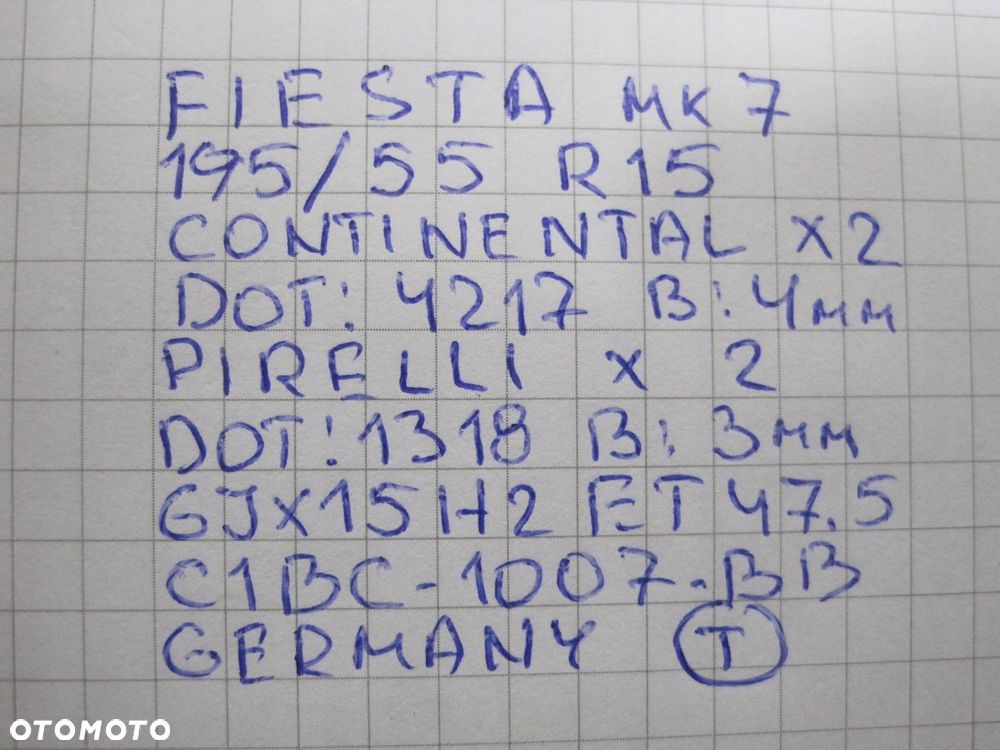 FIESTA MK7
195/55 R15
CONTINENTAL x2
DOT: 4217 B: 4mm
PIRELLI x 2
DOT: 1318 B: 3mm
6Jx15H2 ET 47.5
C1BC-1007-BB
GERMANY T
OTOMOTO